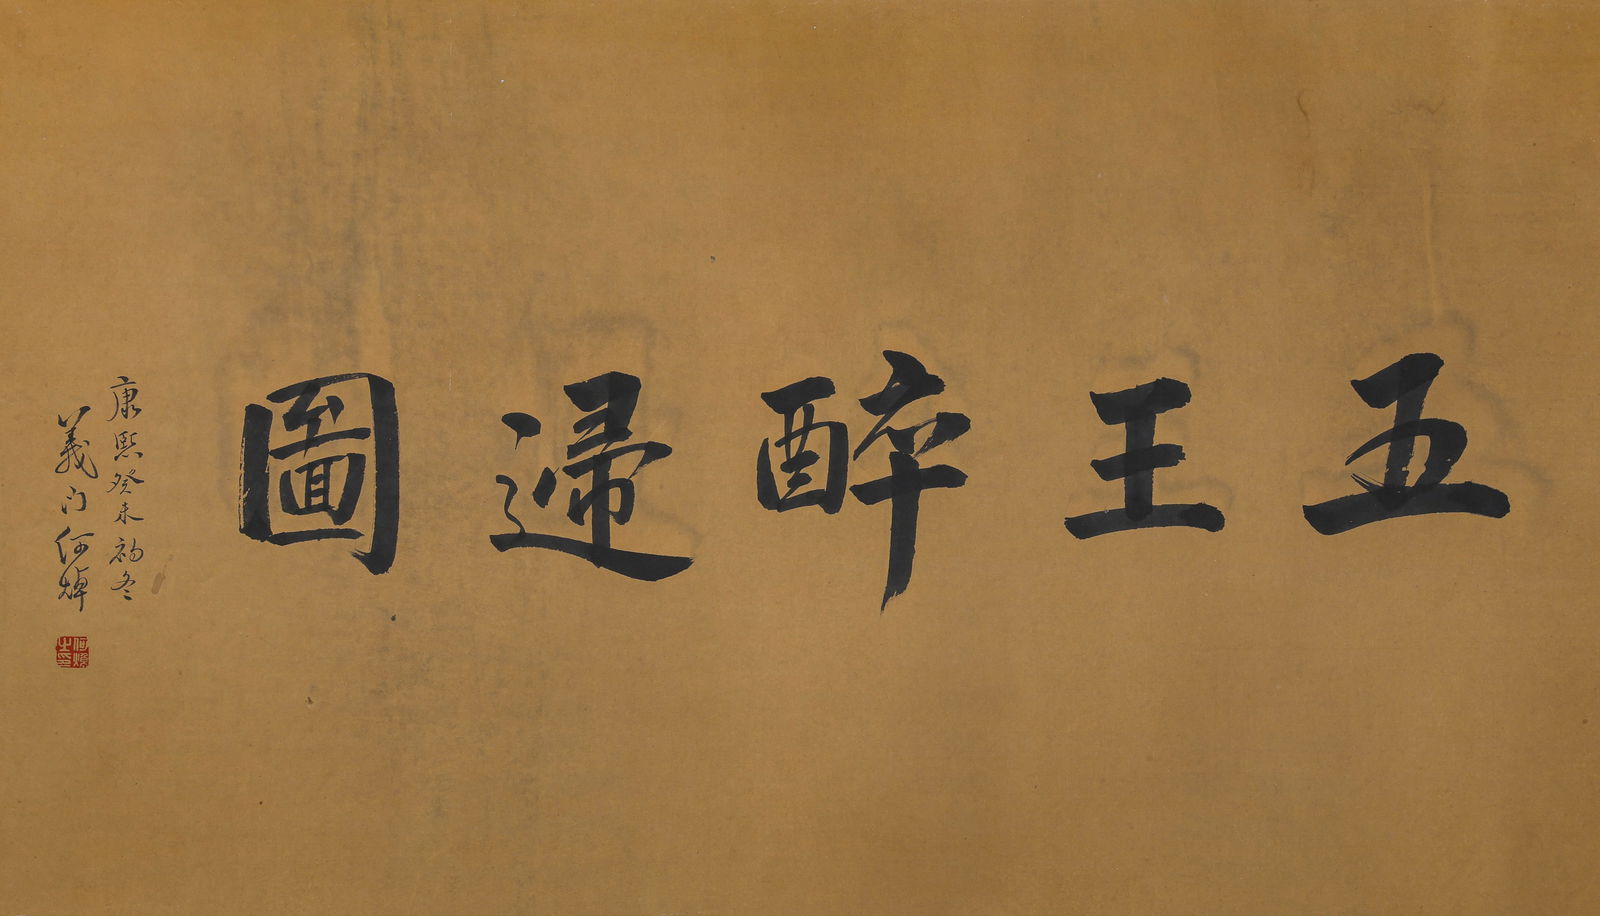 五王醉歸圖
康熙癸未初冬
義門何焯
何焯之印